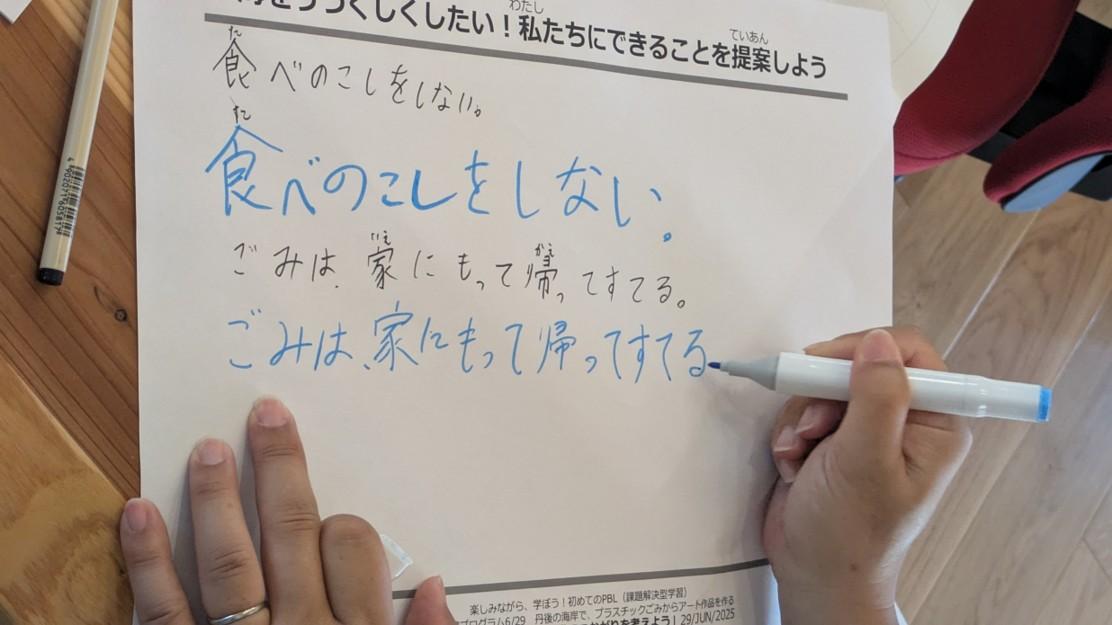 うつくしくしたい！私たちにできることを提案しよう
わたし
ていあん
た
食べのこしをしない。
た
食べのこしをしない。
いえ
かえ
ごみは、家にもって帰ってすてる。
ごみは、家にもって帰ってすてる
楽しみながら、学ぼう！初めてのPBL（課題解決型学習）
プログラム6/29 丹後の海岸で、プラスチックごみからアート作品を作る
を考えよう！29/JUN/2025